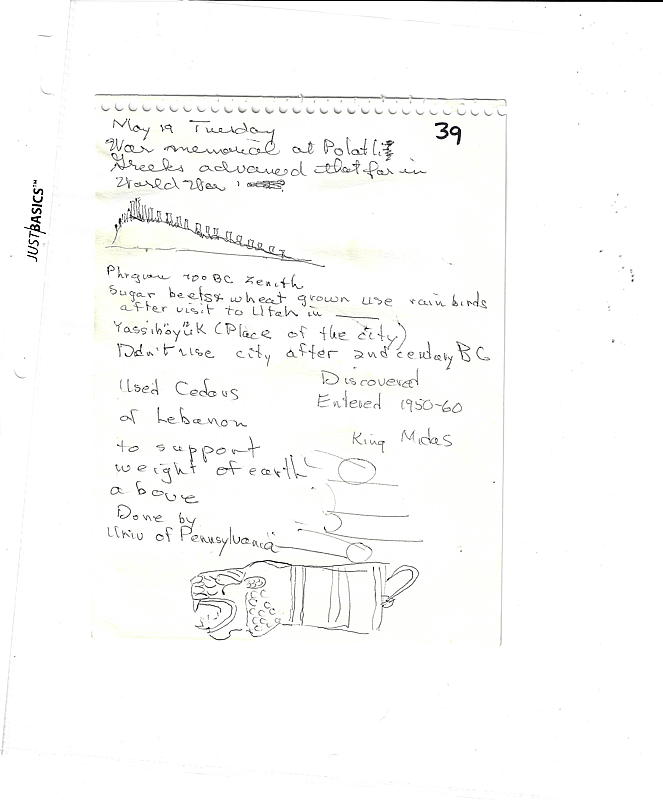 JUST BASICS™
39
May 19 Tuesday
War memorial at Polatli
Greeks advanced that far in
World War 1
Phrgian 700 BC Zenith
Sugar beets & wheat grown use rain birds
after visit to Utah in ____
Yassihöyük (Place of the city)
Didn't use city after 2nd century BC
Used Cedars
of Lebanon
to support
weight of earth
above
Done by
Univ of Pennsylvania
Discovered
Entered 1950-60
King Midas